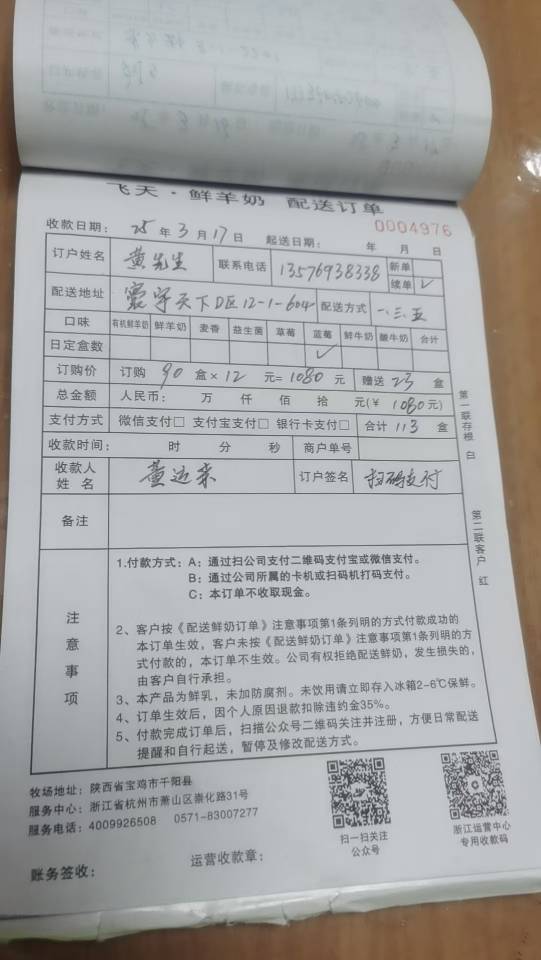 飞天·鲜羊奶 配送订单
0004976
收款日期: 25 年 3 月 17 日 起送日期: 年 月 日
订户姓名 黄先生 联系电话 13576938338 新单
续单 ✓
配送地址 寰宇天下D区12-1-604 配送方式 一、三、五
口味 有机鲜羊奶 鲜羊奶 麦香 益生菌 草莓 蓝莓 鲜牛奶 酸牛奶 合计
日定盒数 ✓
订购价 订购 90 盒 × 12 元= 1080 元 赠送 23 盒
总金额 人民币: 万 仟 佰 拾 元(¥ 1080 元)
支付方式 微信支付□ 支付宝支付□ 银行卡支付□ 合计 113 盒
收款时间: 时 分 秒 商户单号
收款人姓名 董运来 订户签名 扫码支付
备注
注意事项
1.付款方式: A: 通过扫公司支付二维码支付宝或微信支付。
B: 通过公司所属的卡机或扫码机打码支付。
C: 本订单不收取现金。
2、客户按《配送鲜奶订单》注意事项第1条列明的方式付款成功的
本订单生效, 客户未按《配送鲜奶订单》注意事项第1条列明的方
式付款的, 本订单不生效。公司有权拒绝配送鲜奶, 发生损失的,
由客户自行承担。
3、本产品为鲜乳, 未加防腐剂。未饮用请立即存入冰箱2-6℃保鲜。
4、订单生效后, 因个人原因退款扣除违约金35%。
5、付款完成订单后, 扫描公众号二维码关注并注册, 方便日常配送
提醒和自行起送, 暂停及修改配送方式。
第一联存根 白
第二联客户 红
牧场地址: 陕西省宝鸡市千阳县
服务中心: 浙江省杭州市萧山区崇化路31号
服务电话: 4009926508 0571-83007277
扫一扫关注
公众号
浙江运营中心
专用收款码
账务签收: 运营收款章: